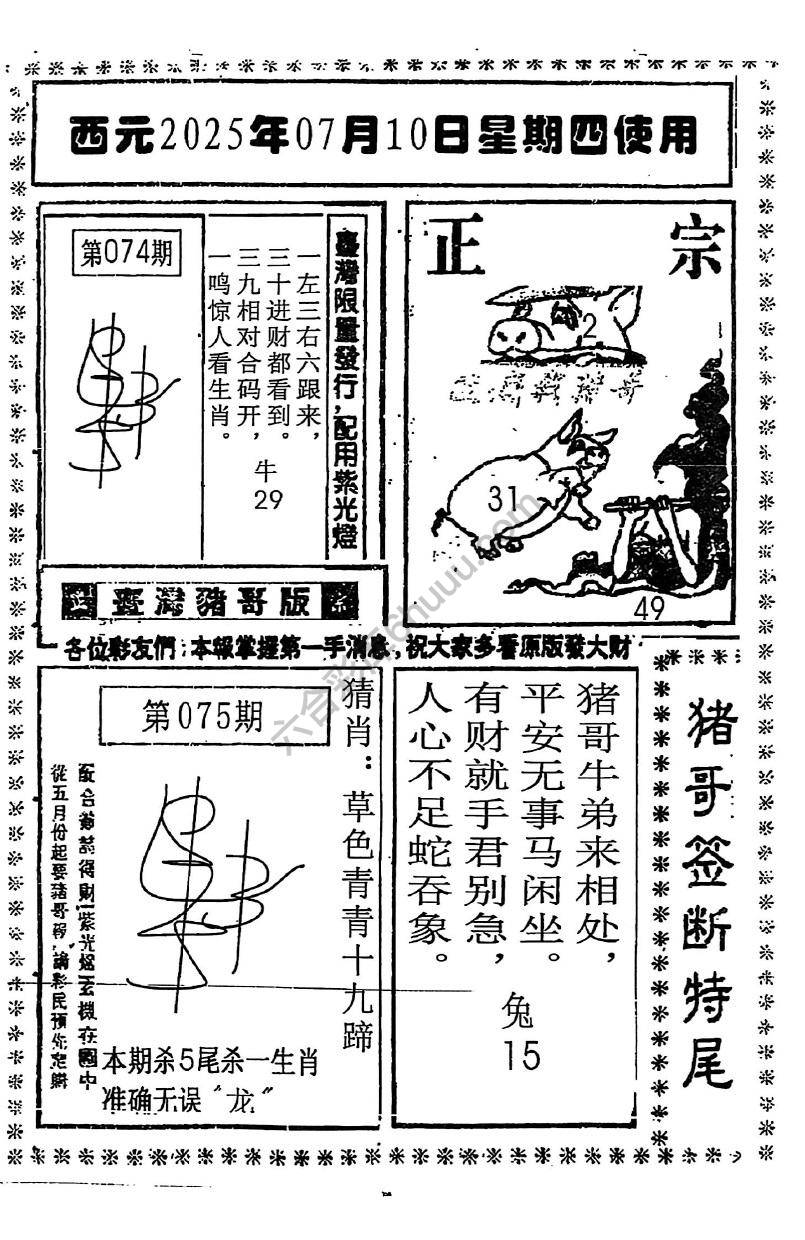 西元2025年07月10日星期四使用
第074期
一左三右六跟来，
三十进财都看到。
三九相对合码开，
一鸣惊人看生肖。
牛
29
臺灣限量發行，配用紫光燈
正宗
2
31
49
臺灣豬哥版
各位彩友們：本報掌握第一手消息，祝大家多看原版發大財
第075期
猜肖：草色青青十九蹄
從五月份起要豬哥報
本期杀5尾杀一生肖
准确无误“龙”
猪哥牛弟来相处，
平安无事马闲坐。
有财就手君别急，
人心不足蛇吞象。
兔
15
猪哥签断特尾